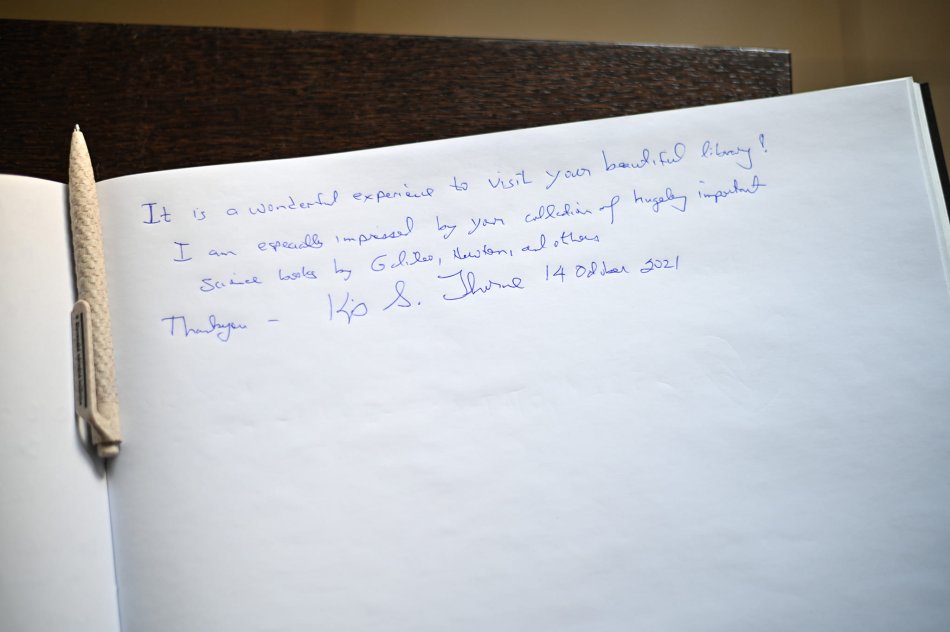 It is a wonderful experience to visit your beautiful library!
I am especially impressed by your collection of hugely important
science books by Galileo, Newton, and others
Thankyou – Kip S. Thorne 14 October 2021